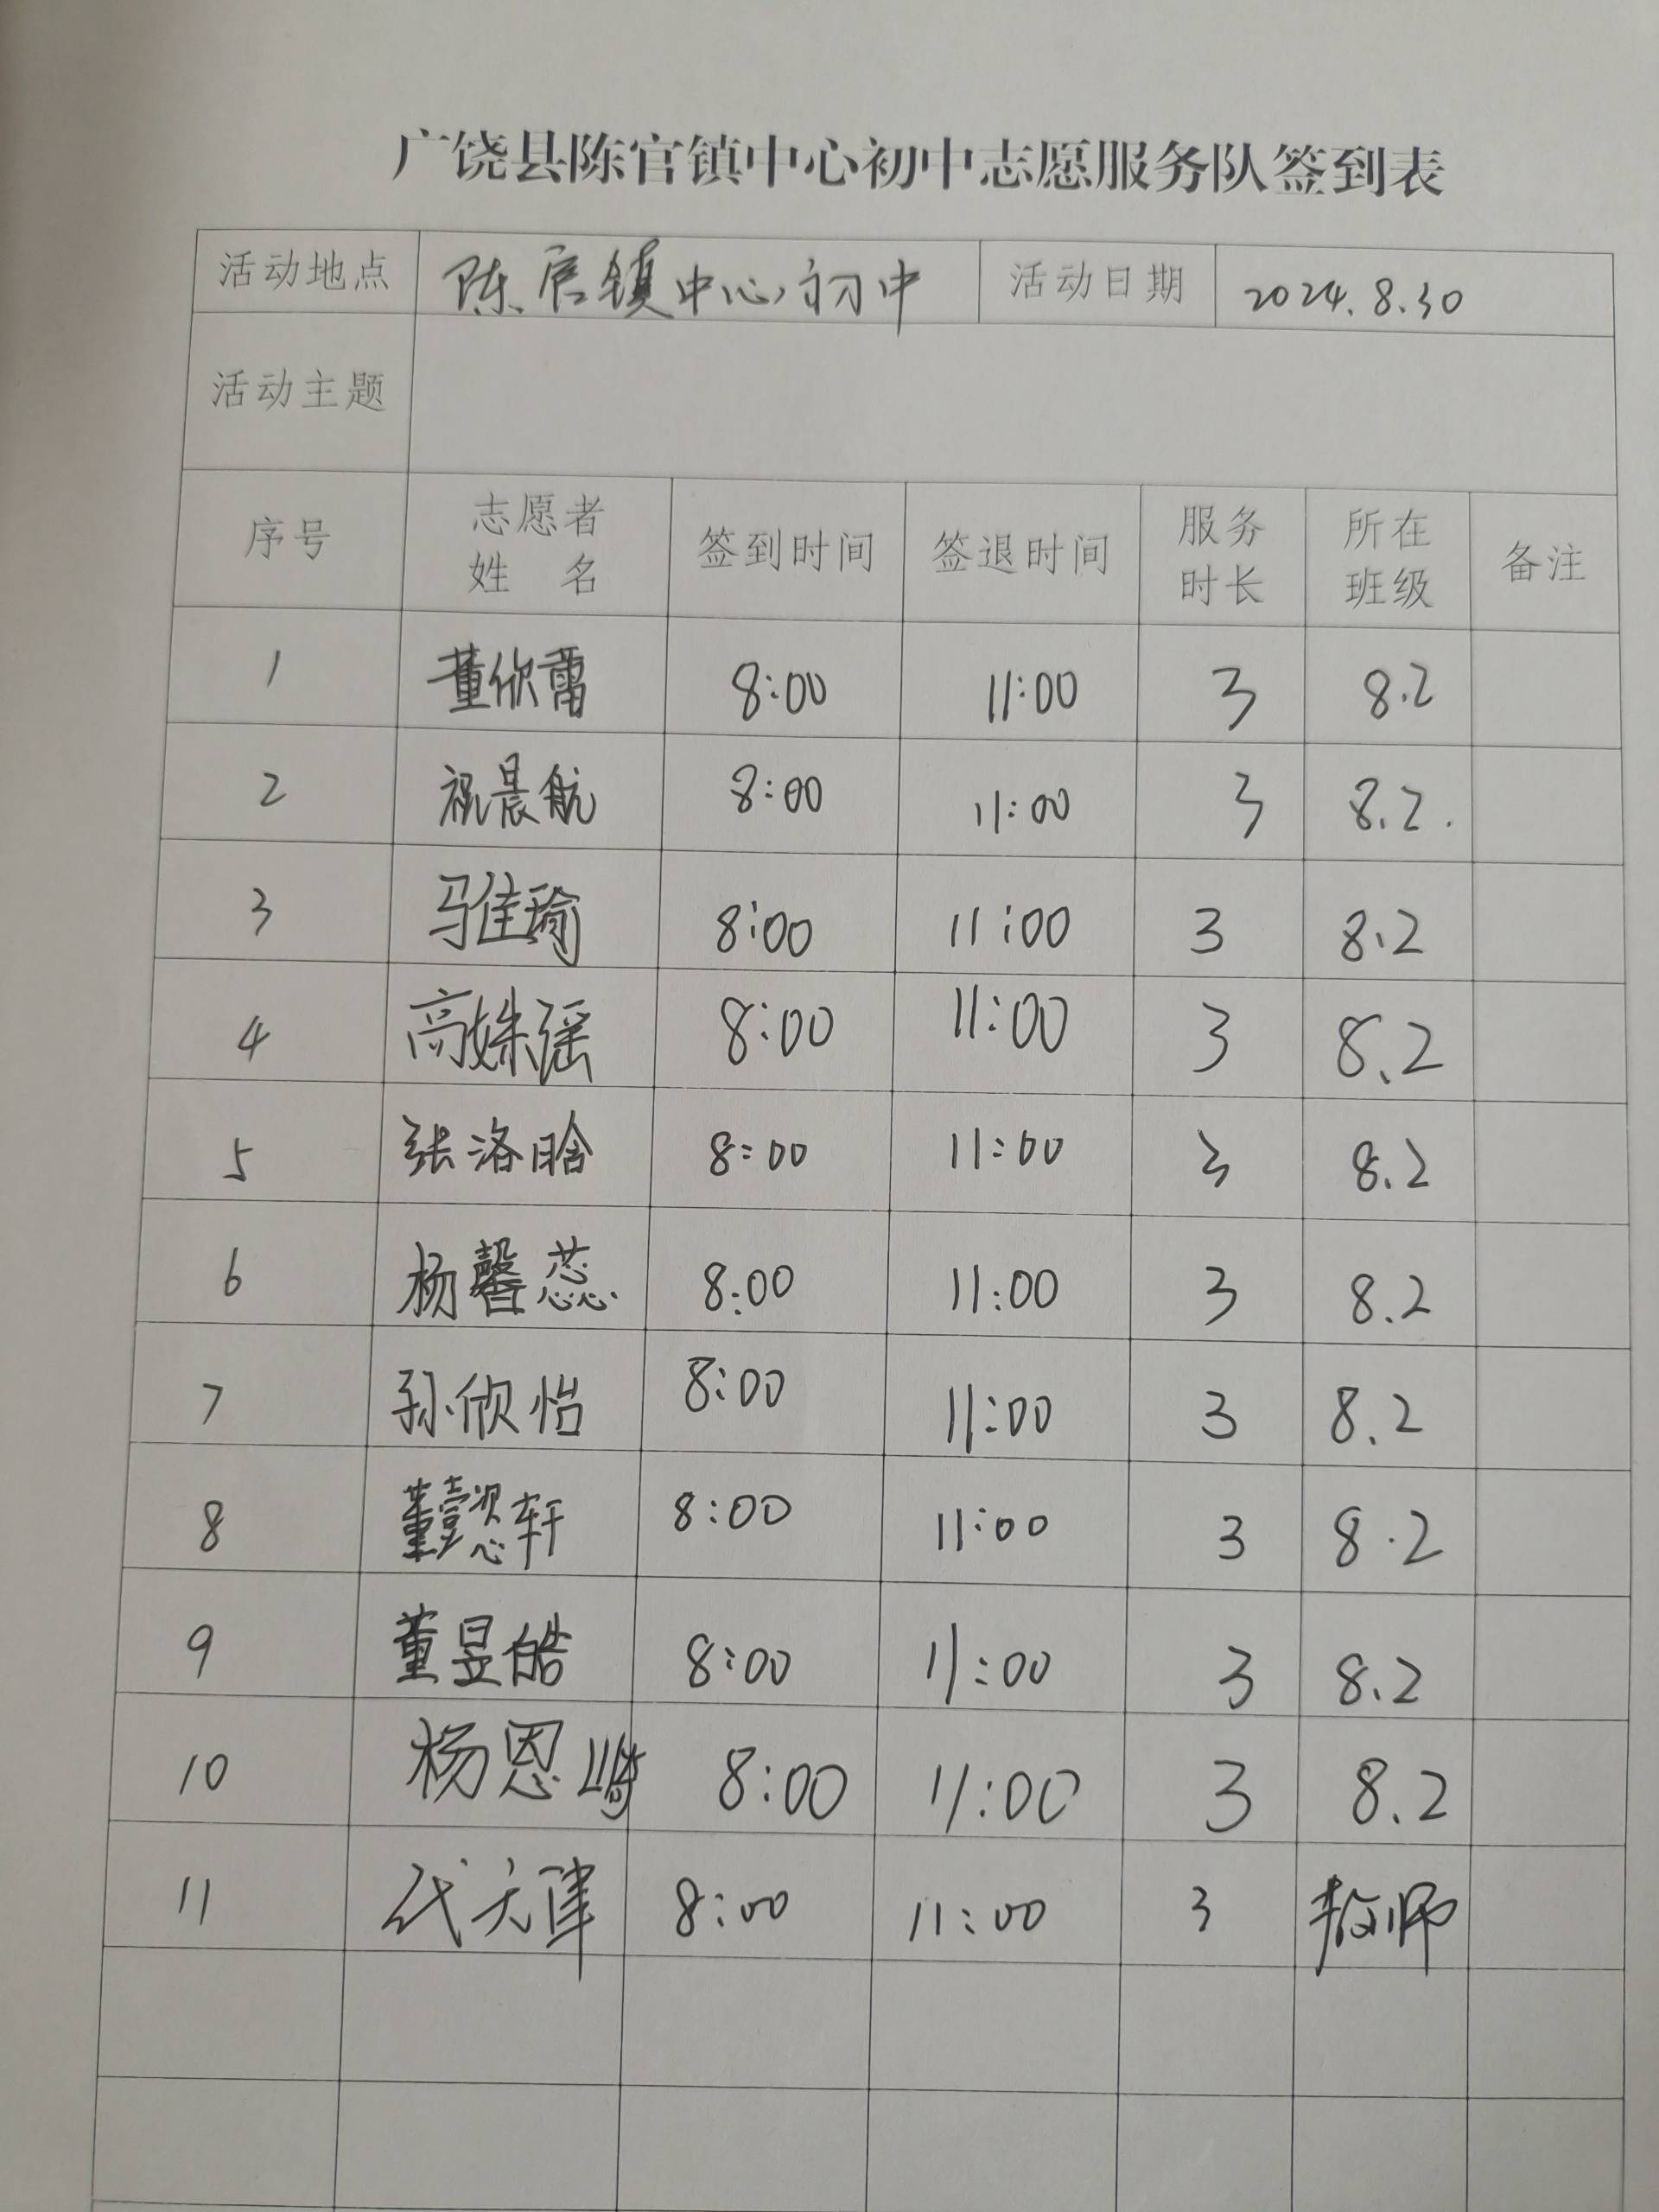 广饶县陈官镇中心初中志愿服务队签到表
活动地点 陈官镇中心初中 活动日期 2024.8.30
活动主题
序号 志愿者姓名 签到时间 签退时间 服务时长 所在班级 备注
1 董欣蕾 8:00 11:00 3 8.2
2 祝晨航 8:00 11:00 3 8.2.
3 马佳瑜 8:00 11:00 3 8.2
4 高姝瑶 8:00 11:00 3 8.2
5 张洛晗 8:00 11:00 3 8.2
6 杨馨蕊 8:00 11:00 3 8.2
7 孙欣怡 8:00 11:00 3 8.2
8 董懿轩 8:00 11:00 3 8.2
9 董昱皓 8:00 11:00 3 8.2
10 杨恩崎 8:00 11:00 3 8.2
11 代 8:00 11:00 3 教师